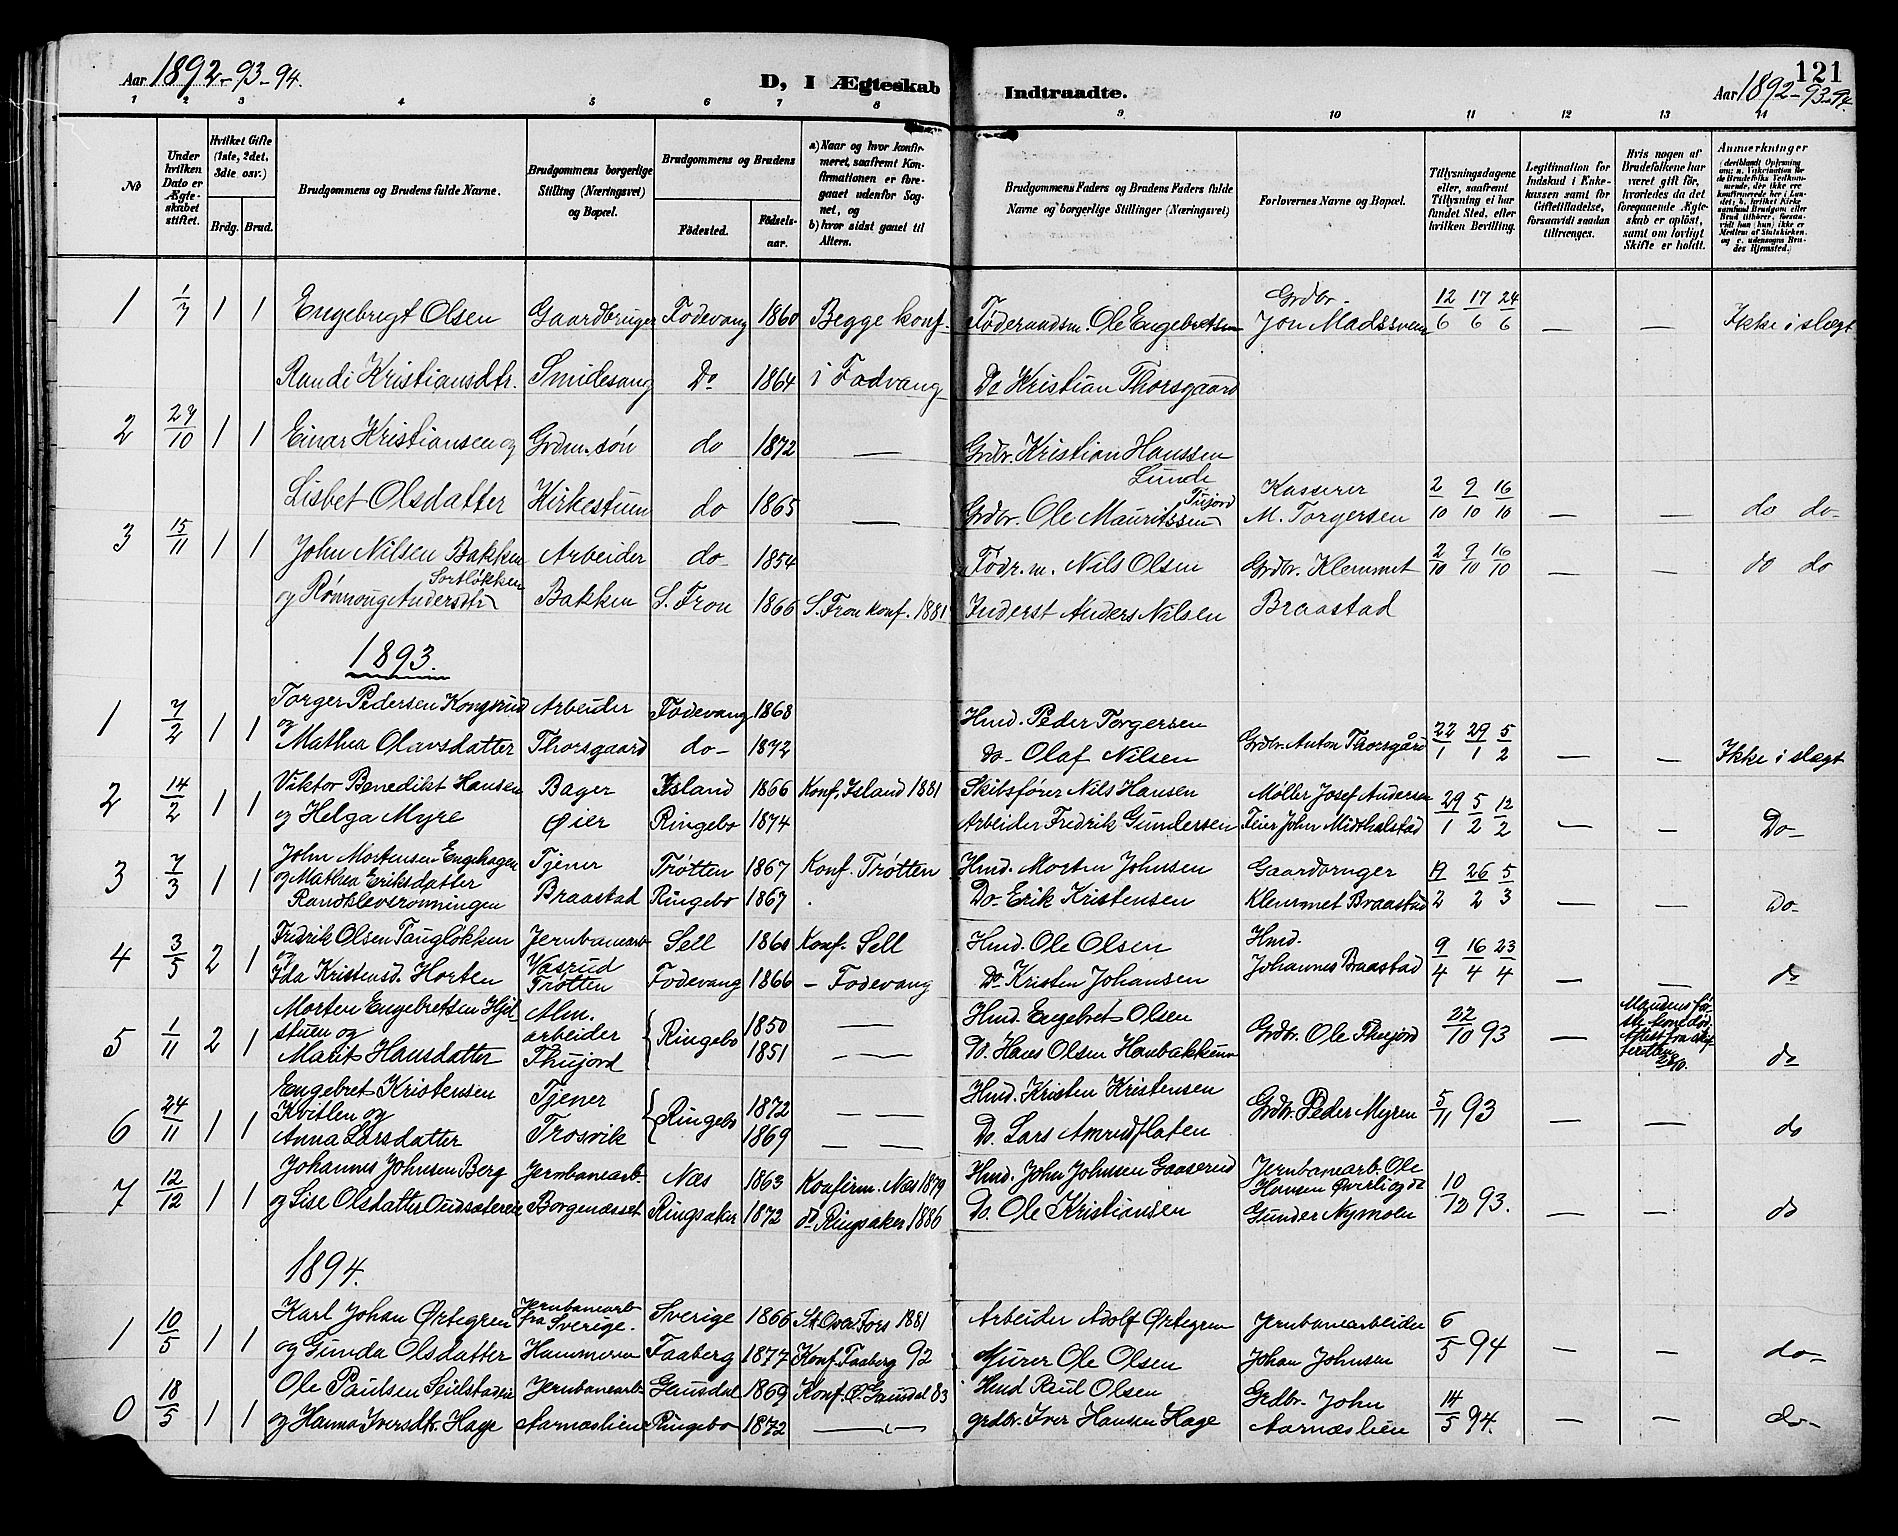 Aar 1892-93-94.
D, I Ægteskab Indtraadte.
121
Aar 1892-93-94.
1 2 3 4 5 6 7 8 9 10 11 12 13 14
No
Under hvilken Dato er Ægteskabet stiftet.
Hvilket Gifte (1ste, 2det, 3die osv.)
Brdg. Brud.
Brudgommens og Brudens fulde Navne.
Brudgommens borgerlige Stilling (Næringsvei) og Bopæl.
Brudgommens og Brudens
Fødested. Fødselsaar.
a) Naar og hvor konfirmeret, saafremt Konfirmationen er foregaaet udenfor Sognet, og
b) hvor sidst gaaet til Alters.
Brudgommens Faders og Brudens Faders fulde Navne og borgerlige Stillinger (Næringsvei)
Forlovernes Navne og Bopæl.
Tillysningsdagene eller, saafremt Tillysning ei har fundet Sted, efter hvilken Bevilling.
Legitimation for Indskud i Enkekassen samt for Giftetilladelse, forsaavidt saadan tiltrænges.
Hvis nogen af Brudefolkene har været gift før, hvorledes da det foregaaende Ægteskab er opløst, samt om lovligt Skifte er holdt.
Anmerkninger
1 1/7 1 1 Engebrigt Olsen Gaardbruger Fodevang 1860 Begge konf. Føderaadsm. Ole Engebretsen Grdbr. Jon Madssveen 12/6 17/6 24/6 — — Ikke i slægt
Randi Kristiansdtr. Smidesang Do 1864 i Fodvang Do Kristian Thorsgaard
2 29/10 1 1 Einar Kristiansen og Grdm. søn do 1872 — Grdbr. Kristian Hanssen Lunde
Lisbet Olsdatter Kirkestuen do 1865 — Grdbr. Ole Mauritssen Tujord Kasserer M. Torgersen 2/10 9/10 16/10 — — do do
3 15/11 1 1 John Nilsen Bakken Arbeider do 1854 Fødr. m. Nils Olsen Grdbr. Klemmet 2/10 9/10 16/10 — — do do
og Rønnoug Andersdtr Sortløkken Bakken S. Fron 1866 S. Fron konf. 1881 Inderst Anders Nilsen Braastad
1893.
1 7/2 1 1 Torger Pedersen Kongsrud Arbeider Fodevang 1868 Hmd. Peder Torgersen
og Mathea Olavsdatter Thorsgaard do 1872 do Olaf Nilsen Grdbr. Anton Thorsgård 22/1 29/1 5/2 — — Ikke i slægt
2 14/2 1 1 Viktor Benedikt Hansen Bager Island 1866 Konf. Island 1881 Skibsfører Nils Hansen Møller Josef Andersen 29/1 5/2 12/2
og Helga Myre Øier Ringebo 1874 Arbeider Fredrik Gundersen Feier John Midthalstad — — Do
3 7/3 1 1 John Mortensen Engehagen Tjener Trøtten 1867 Konf. Trøtten Hmd. Morten Johnsen Gaardbruger 19/2 26/2 5/3
og Mathea Eriksdatter Randkleveronningen Braastad Ringebo 1867 Do Erik Kristensen Klemmet Braastad — — Do
4 3/5 2 1 Fredrik Olsen Tangløkken Jernbanearb. Sell 1860 Konf. Sell Hmd. Ole Olsen Hmd. 9/4 16/4 23/4
og Ida Kristensd. Horten Vasrud Trøtten Fodevang 1866 — Fodevang Do Kristen Johansen Johannes Braastad — — do
5 1/11 2 1 Morten Engebretsen Hjelstuen og Alm. arbeider Ringebo 1850 — Hmd. Engebret Olsen Grdbr. Ole Thujord 22/10 93 —
Marit Hansdatter Thujord 1851 — Do. Hans Olsen Haubakken do
6 24/11 1 1 Engebret Kristensen Kvitlen og Tjener Ringebo 1872 — Hmd. Kristen Kristensen Grdbr. Peder Myren 5/11 93 — —
Anna Larsdatter Trosvik 1869 — Do. Lars Amrudflaten do
7 12/12 1 1 Johannes Johnsen Berg Jernbanearb. Næs 1863 Konfirm. Næs 1879 Hmd. John Johnsen Gaaserud Jernbanearb. Ole Hansen Øverli og do 10/12 93.
og Lise Olsdatter Ouidsæterene Borgenæsset Ringsaker 1872 do Ringsaker 1886 Do. Ole Kristiansen Gunder Nymoen — — do
1894.
1 10/5 1 1 Karl Johan Örtegren Jernbanearb. fra Sverige. Sverige 1866 1881 Arbeider Adolf Örtegren Jernbanearbeider 6/5 94
og Gunda Olsdatter Hammeren Faaberg 1877 Konf. Faaberg 92 Murer Ole Olsen Johan Johnsen — — do
0 18/5 1 1 Ole Paulsen Seielstadeie Jernbanearb. Gausdal 1869 Konf. Ø. Gausdal 83 Hmd Paul Olsen Grdbr. John 14/5 94.
og Hanna Iversdtr. Hage Aarnæslien Ringebo 1872 — grdbr. Iver Hansen Hage Aarnæslien — — do